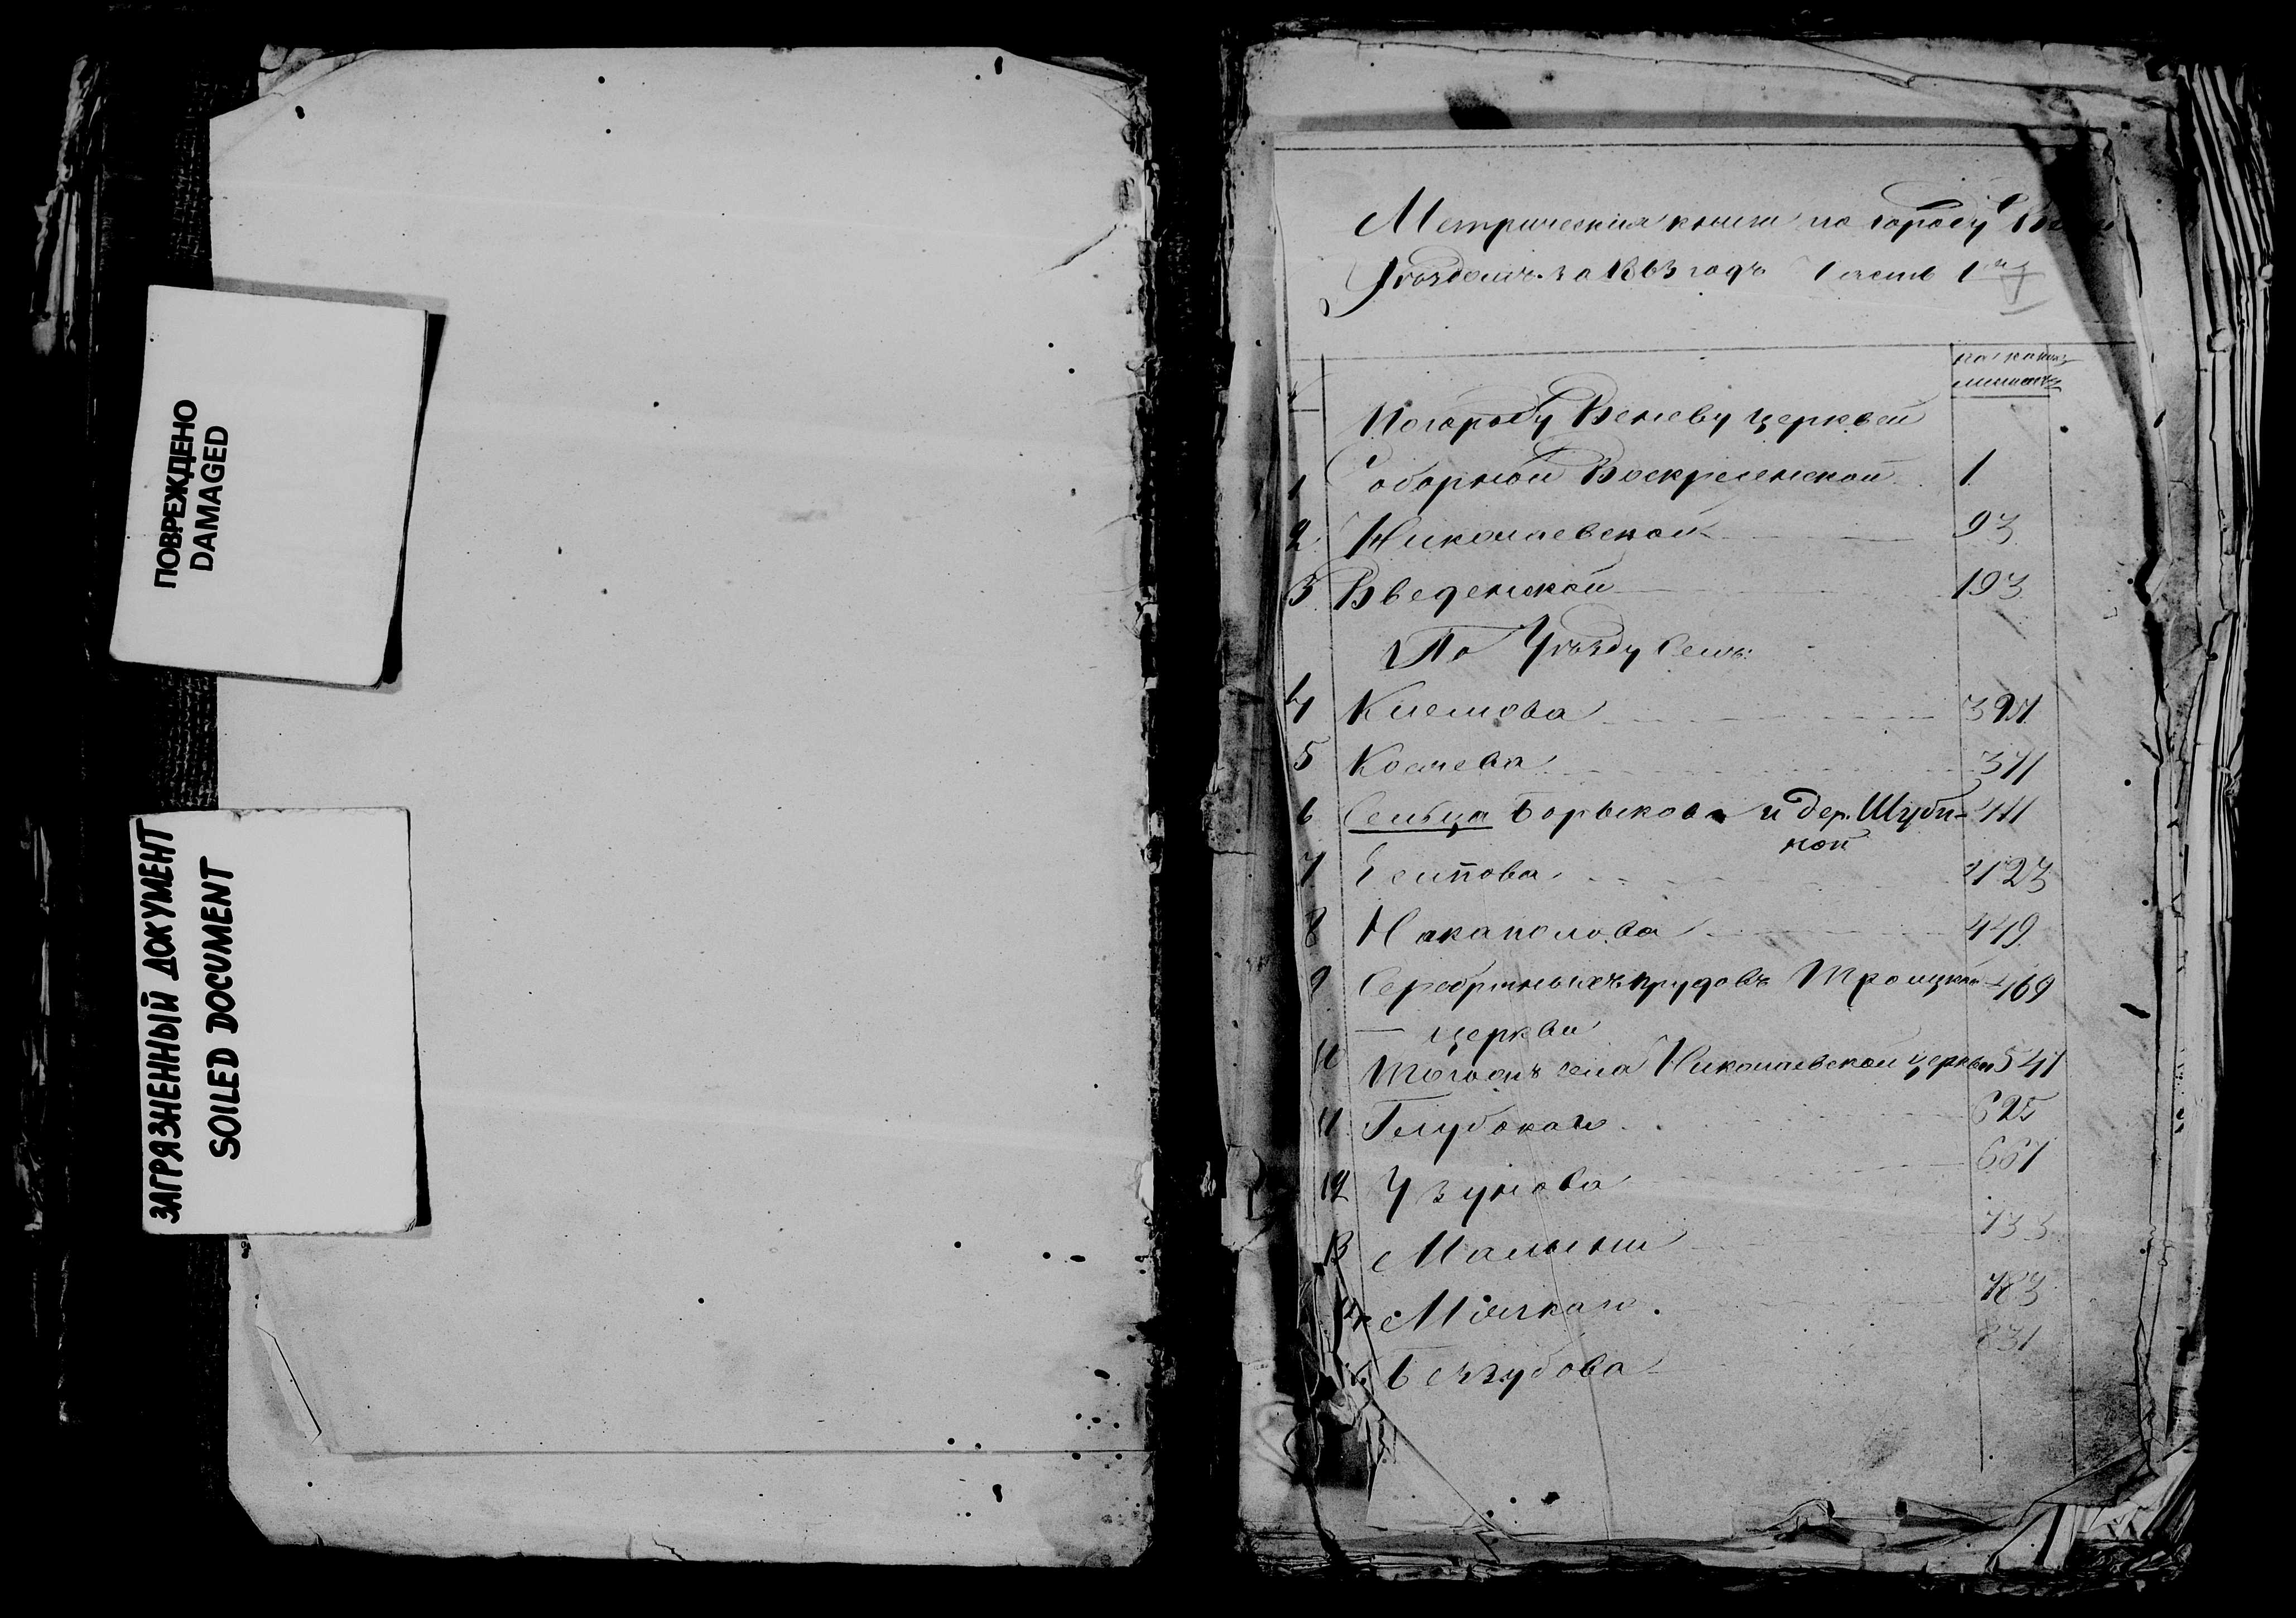 ПОВРЕЖДЕНО
DAMAGED
ЗАГРЯЗНЕННЫЙ ДОКУМЕНТ
SOILED DOCUMENT
Метрическия книги по городу
Уѣздомъ за 1863 годъ Часть 1я
на какихъ
листахъ
По городу Веневу церквей
1 Соборной Воскресенской 1
2 Николаевской 93
3 Введенской 193
По Уѣзду Селъ:
4 Клемова
5 Костева 371
6 Сельца Борыкова и дер. Шуби-
ной
7 Есипова 423
8 Накаполова 449
9 Серебряныхъ прудовъ Троицкой 469
церкви
10 Тогожъ села Николаевской церкви 541
11 Глубокаго 625
12 Узунова 667
13 Малыни 733
14 Мягкаго 783
15 Беззубова 831